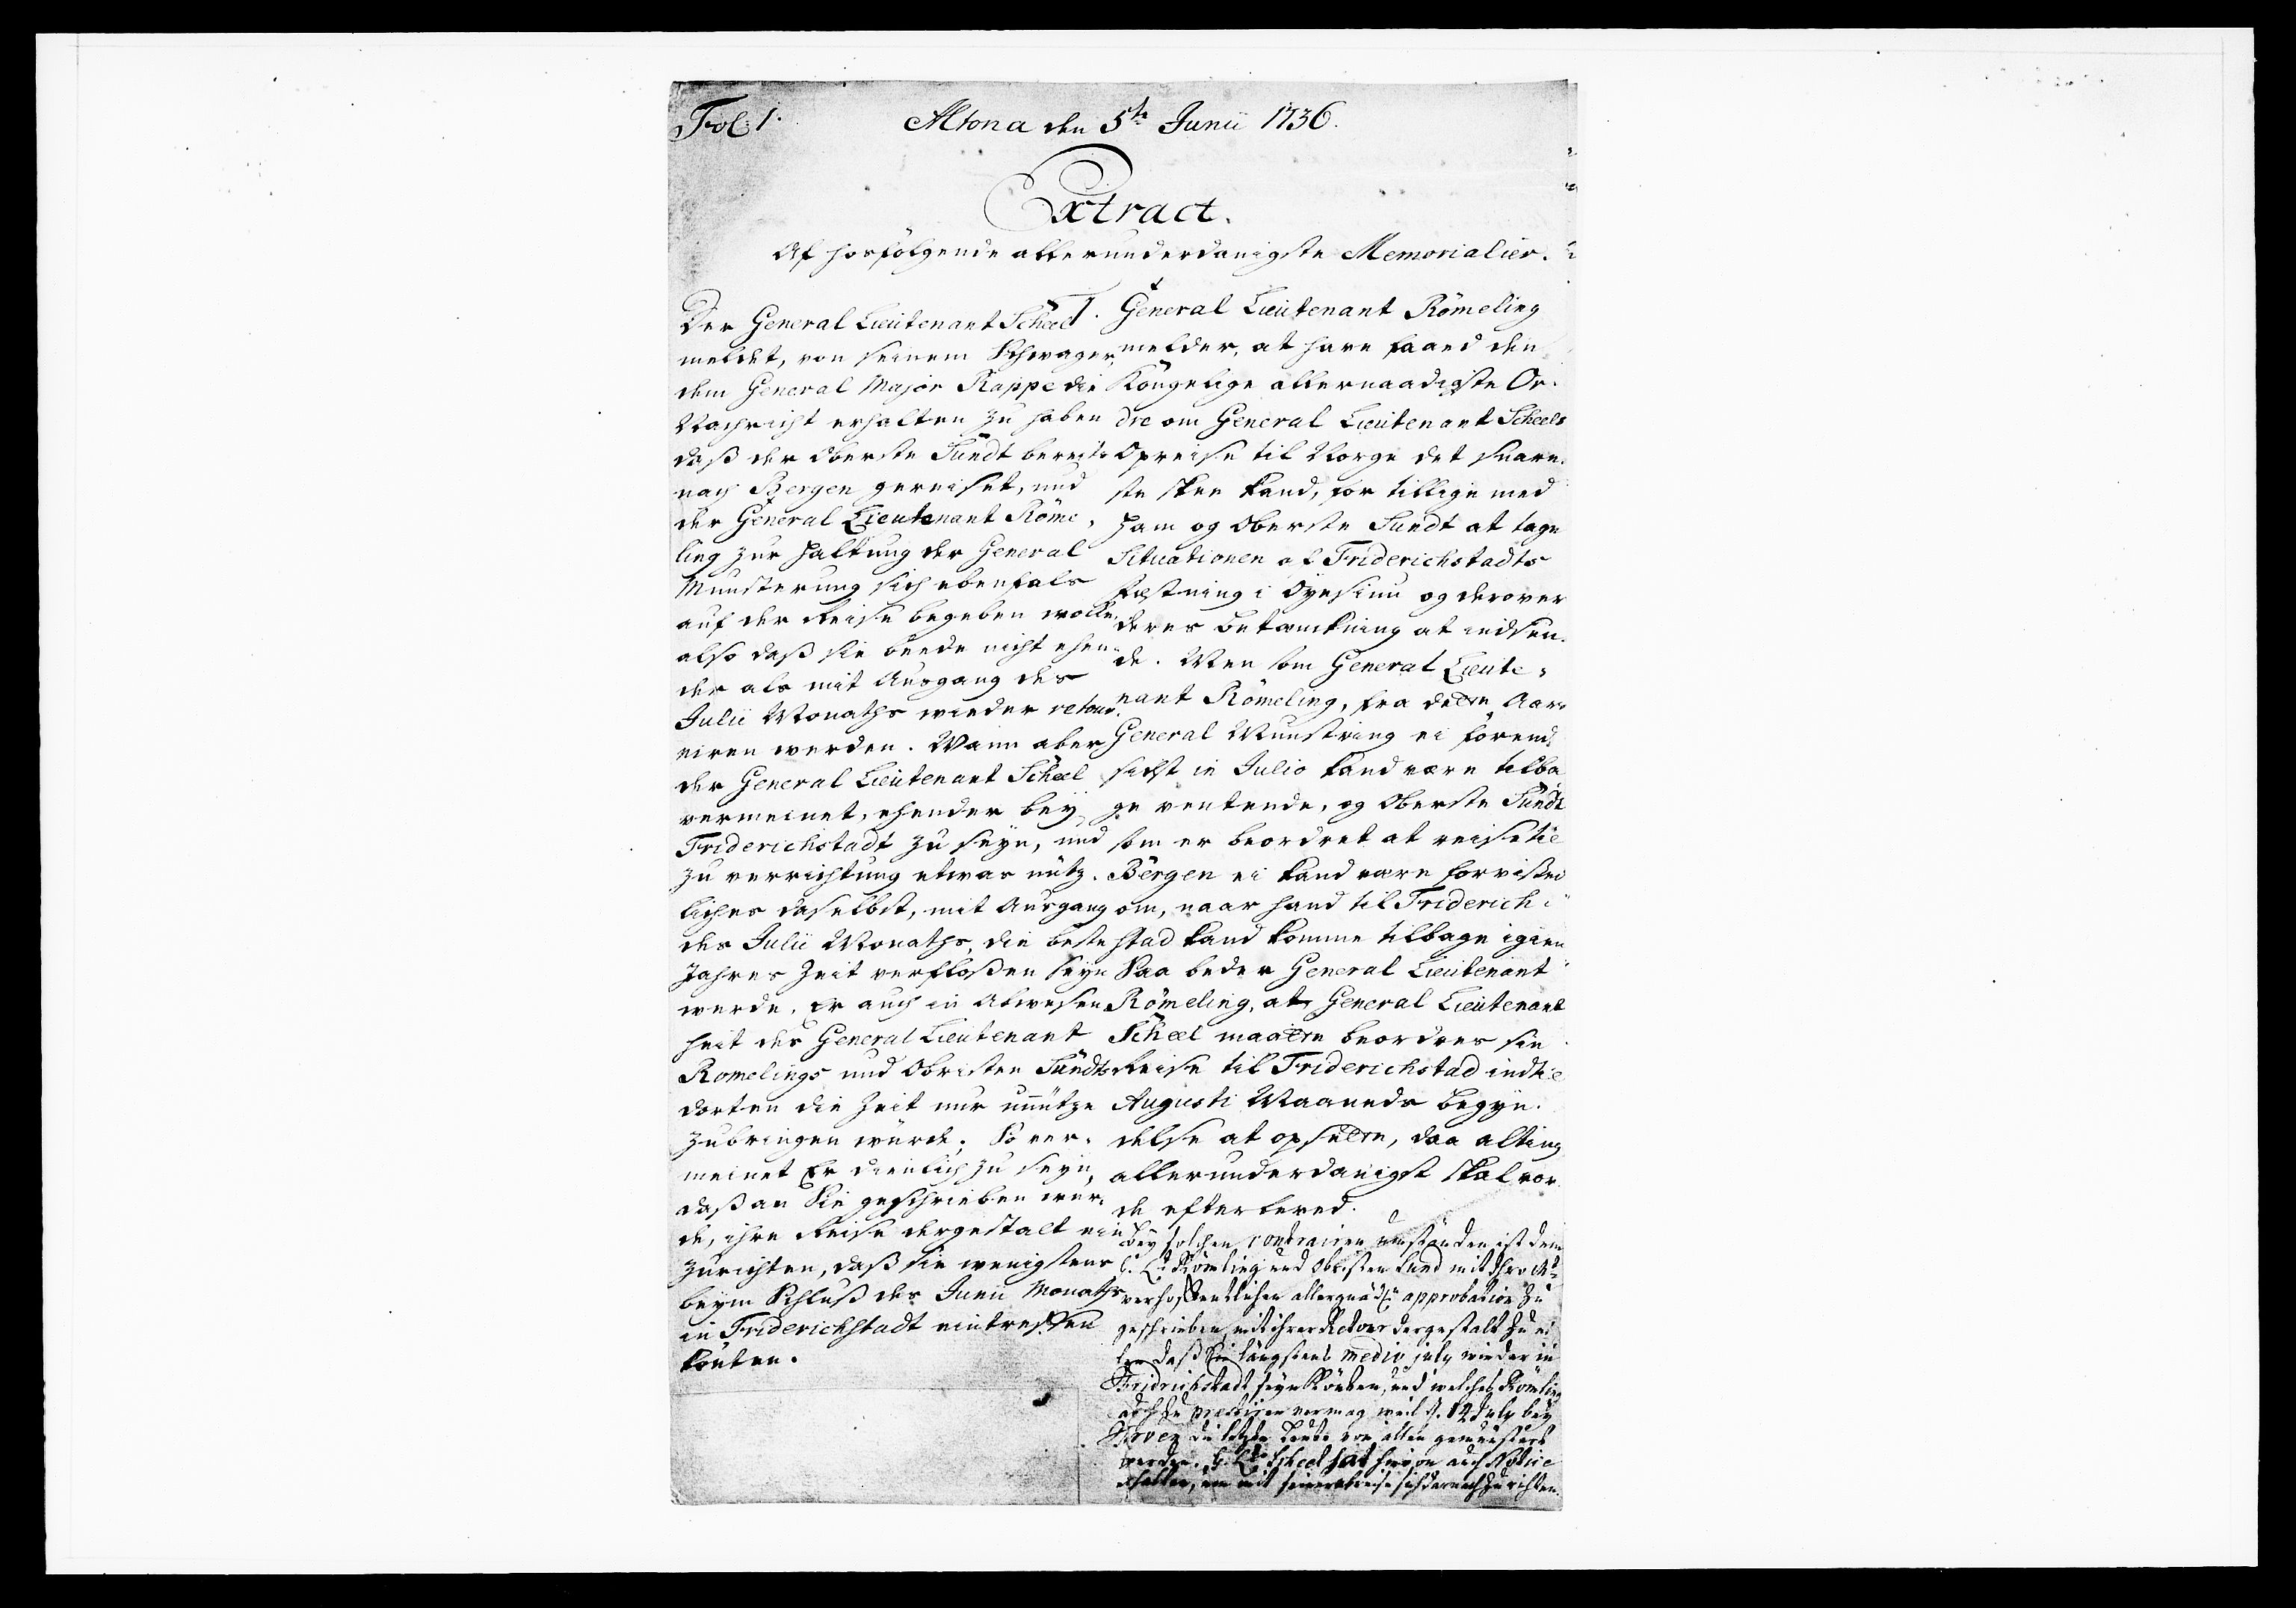 Fol: 1. Altona den 5te Junii 1736.
Extract.
Af hosfölgende allerunderdanigste Memorialier.
Der General Lieutenant Scheel
meldet, von seinem Schwager,
dem General Major Rappe die
Nachricht erhalten zu haben
daß der Oberste Sundt bereits
nach Bergen gereiset, und
der General Lieutenant Röme,
ling zur haltung der General
Munsterung sich ebenfals
auf der Reise begeben wolle,
also daß sie beede nicht ehen,
der als mit Ausgang des
Julii Monaths wieder retour,
niren werden. Wann aber
der General Lieutenant Scheel
vermeinet, ehender bey
Friderichstadt zu seyn, und
zu verrichtung etwas nütz,
liches daselbst, mit Ausgang
des Julii Monaths, die beste
Jahres Zeit verfloßen seyn
werde, Er auch in Abwesen
heit des General Lieutenant
Romelings und Obristen Sundts
dorten die Zeit nur unnütze
zubringen würde; So ver,
meinet Er dienlich zu seyn,
daß an Sie geschrieben wer,
de, ihre Reise dergestalt ein
zurichten, daß sie wenigstens
beym Schluß des Junii Monaths
in Friderichstadt eintreffen
könten.
1. General Lieutenant Römeling
melder, at have faaed den
Kongelige allernaadigste Or,
dre om General Lieutenant Scheels
Opreise til Norge det snare,
ste skee kand, for tillige med
ham og Oberste Sundt at tage
Situationen af Friderichstadts
Fæstning i Öyesiun og derover
deres betænkning at indsen,
de. Men som General Lieute,
nant Römeling, fra dette Aars
General Munstring ei förend
sidst in Julio kand være tilba,
ge ventende, og Oberste Sundt
som er beordret at reise til
Bergen ei kand være forvißed
om, naar hand til Friderich,
stad kand komme tilbage igien
Saa beder General Lieutenant
Römeling, at General Lieutenant
Scheel maatte beordres sin
Reise til Friderichstad indtil
Augusti Maaneds begyn,
delse at opsætte, daa alting
allerunderdanigst skal vor,
de efterleved.
Bey solchen contrairen umständen ist dem
G. Lt. Römeling und Obristen Sund mit Ihro Mt.
verhoffentlichen allergnädst. approbation zu
geschrieben, mit ihrer Retour dergestalt zu ei
len daß Sie längstens medio july wieder in
Fridrichstadt seyn könten, und welches Römling
auch zu præstiren vermag weil d. 12 July bey
die letzte Leute von allen gemunstert
werden. G. Lt. Scheel hat hievon auch Notice
erhalten, um mit seiner abreise sich darnach zu richten.